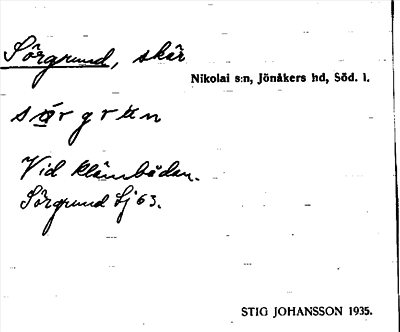 Sörgrund, skär
Nikolai s:n, Jönåkers hd, Söd. l.
Vid klämbådan.
Sörgrund Lj 63.
STIG JOHANSSON 1935.